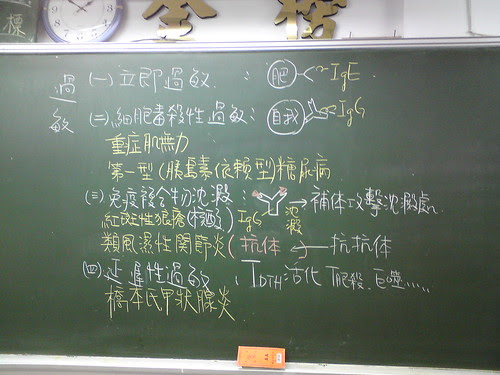 標
金榜
過敏
(一) 立即過敏 : 肥 IgE
(二) 細胞毒殺性過敏 : 自我 IgG
重症肌無力
第一型(胰島素依賴型)糖尿病
(三) 免疫複合物沈澱 : IgG 沈澱 → 補体攻擊沈澱處
紅斑性狼瘡(核酸)
類風濕性關節炎(抗体)← 抗抗体
(四) 延遲性過敏 : TDTH活化 T肥殺、巨噬.....
橋本氏甲狀腺炎